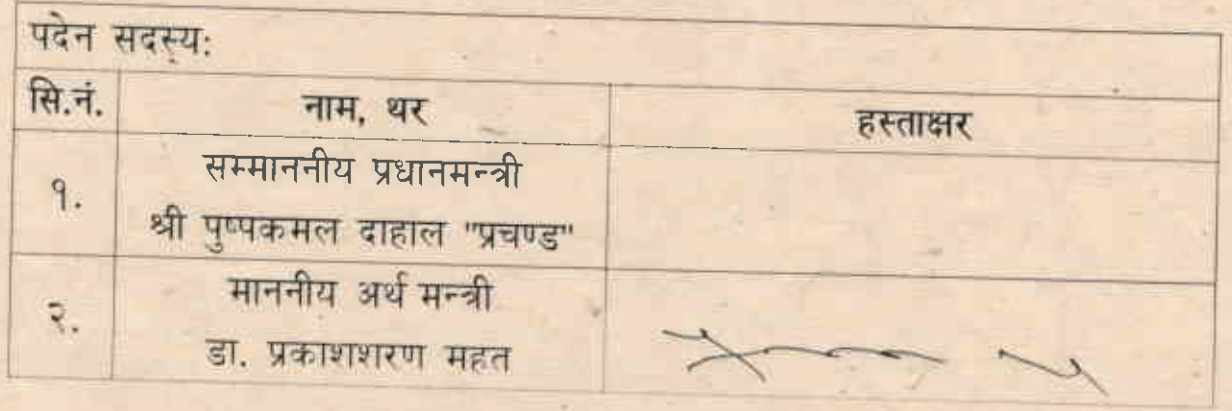 पदेन सदस्य:
सि.नं. नाम, थर हस्ताक्षर
१. सम्माननीय प्रधानमन्त्री
श्री पुष्पकमल दाहाल "प्रचण्ड"
२. माननीय अर्थ मन्त्री
डा. प्रकाशशरण महत